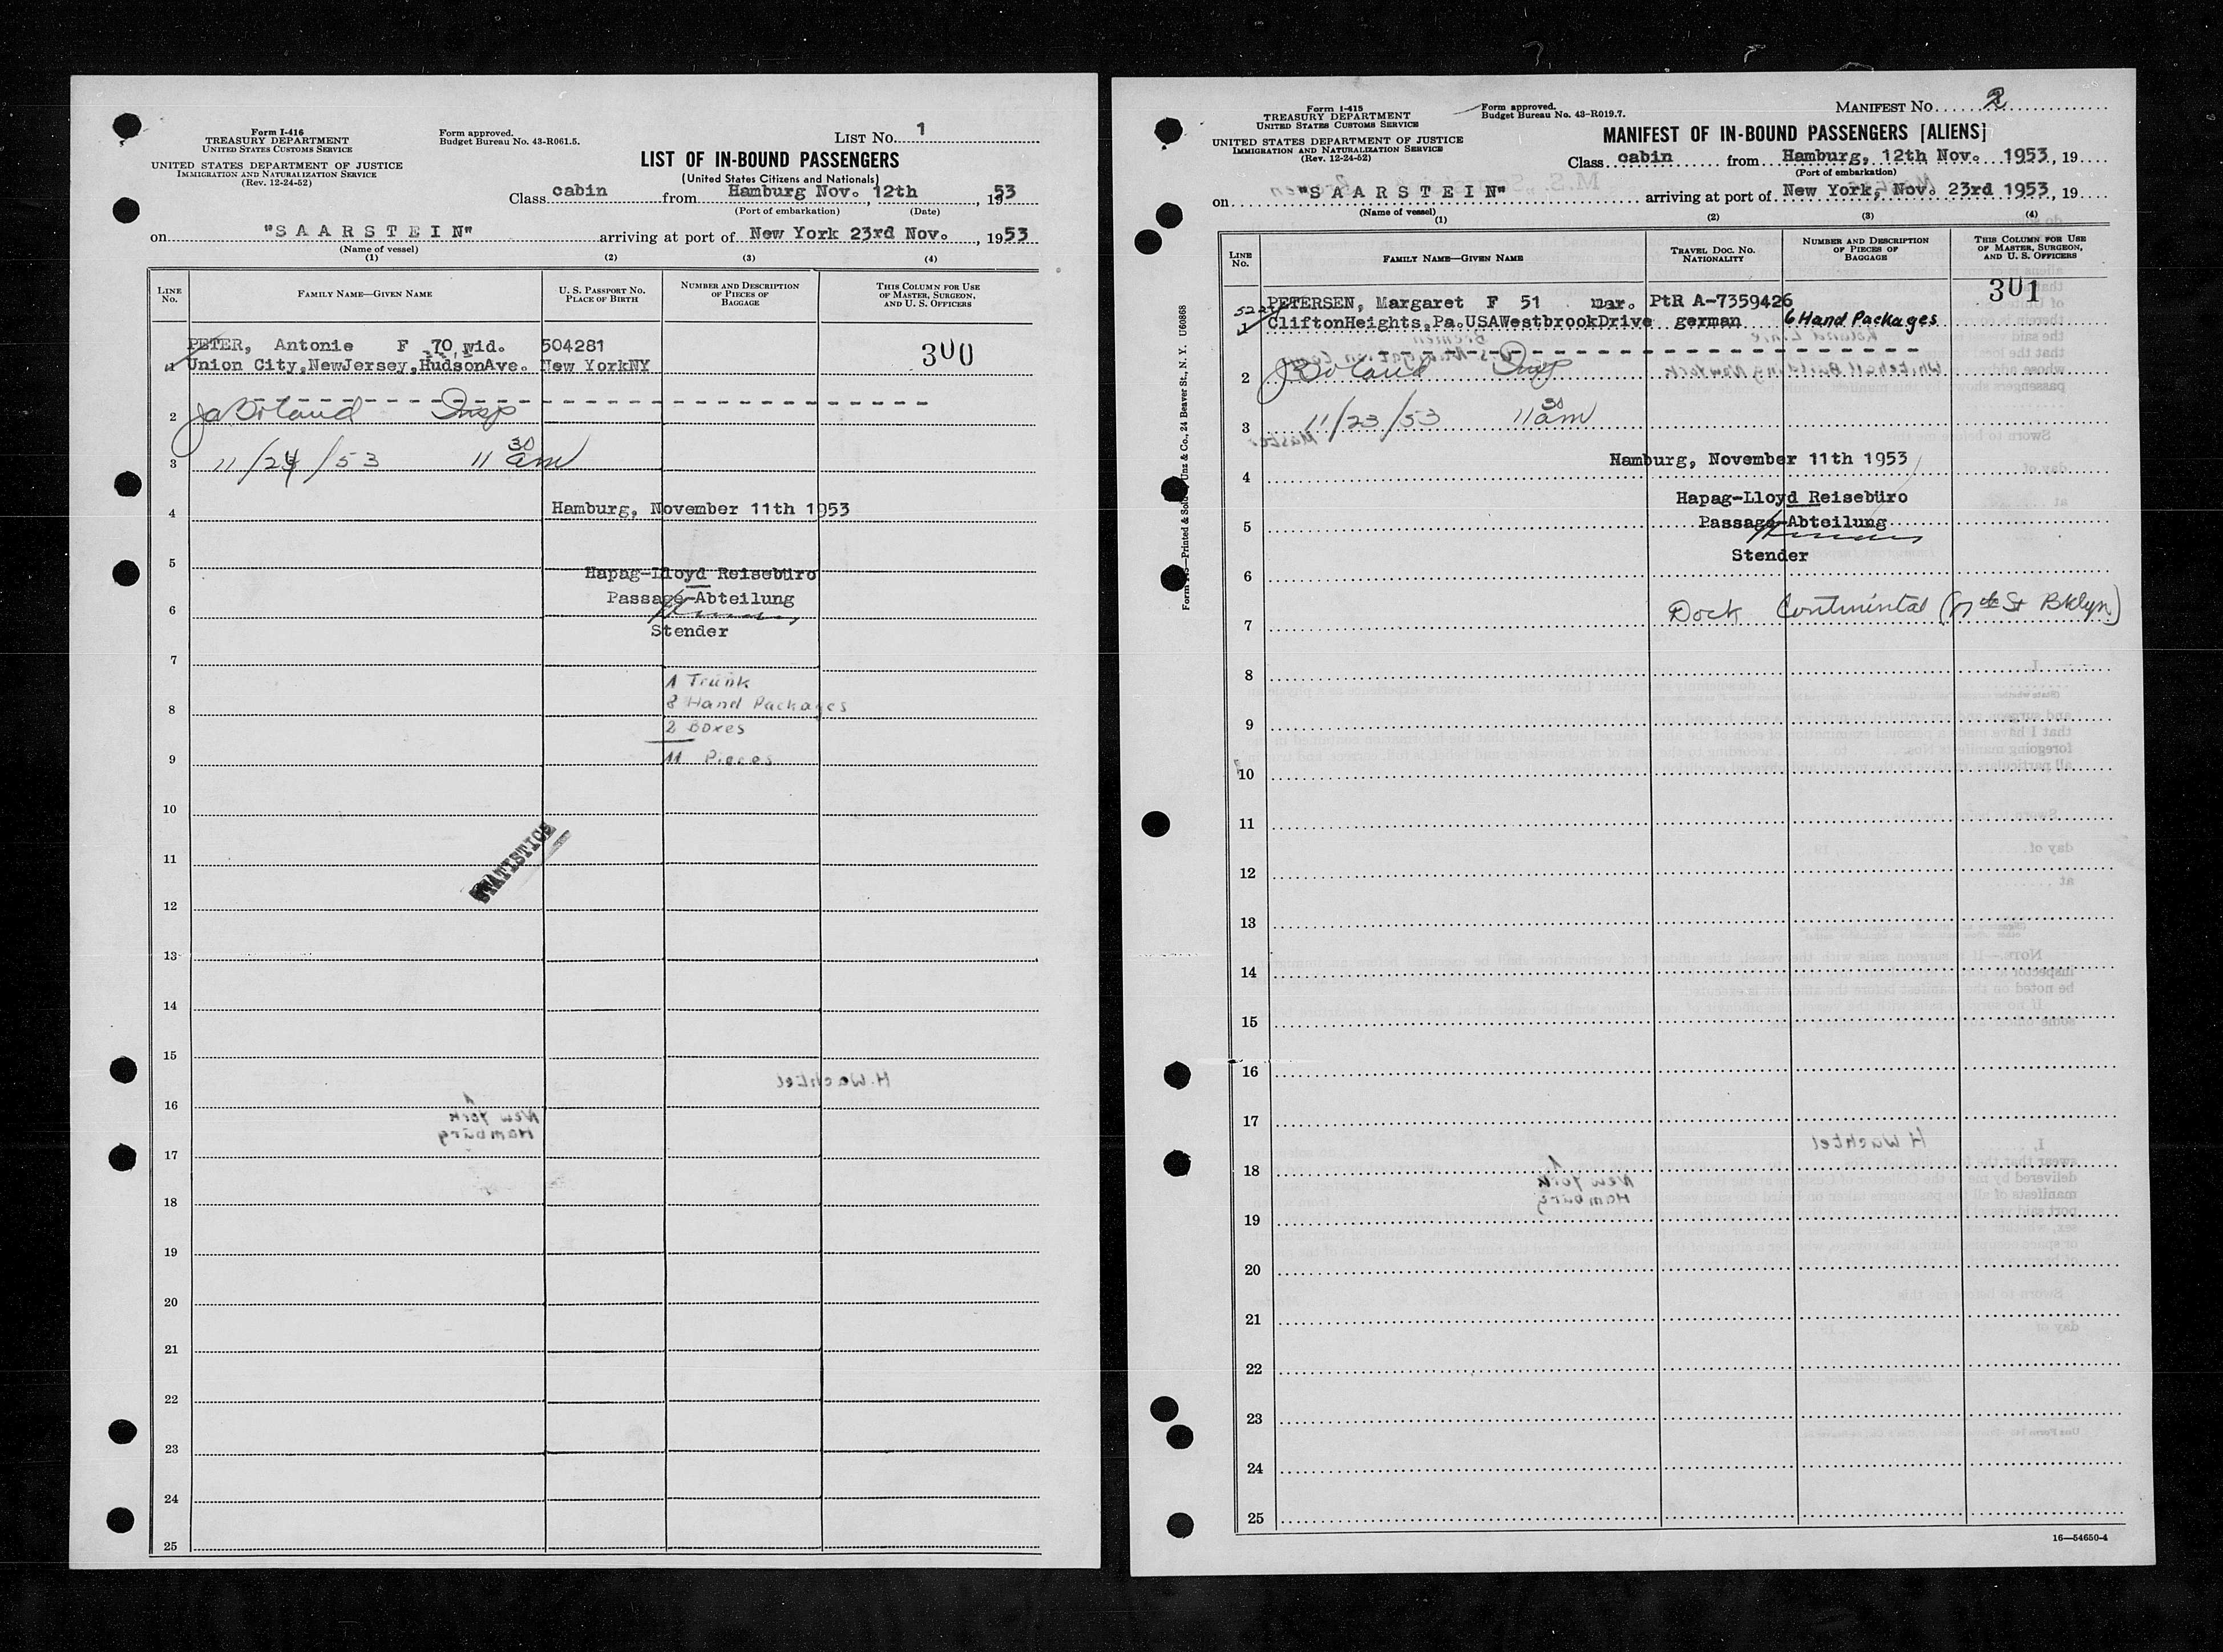 Form I-416
TREASURY DEPARTMENT
UNITED STATES CUSTOMS SERVICE
UNITED STATES DEPARTMENT OF JUSTICE
IMMIGRATION AND NATURALIZATION SERVICE
(Rev. 12-24-52)
Form approved.
Budget Bureau No. 43-R061.5.
LIST No. 1
LIST OF IN-BOUND PASSENGERS
(United States Citizens and Nationals)
Class cabin from Hamburg Nov., 12th, 1953
(Port of embarkation) (Date)
on "SAARSTEIN" arriving at port of New York 23rd Nov., 1953
(Name of vessel)
(1) (2) (3) (4)
LINE No. FAMILY NAME—GIVEN NAME U. S. PASSPORT No. PLACE OF BIRTH NUMBER AND DESCRIPTION OF PIECES OF BAGGAGE THIS COLUMN FOR USE OF MASTER, SURGEON, AND U. S. OFFICERS
PETER, Antonie F 70 wid. 504281 300
1 Union City,NewJersey,HudsonAve. New YorkNY
2 Insp
3 11/24/53 11 30 am
4 Hamburg, November 11th 1953
5 Hapag-Lloyd Reisebüro
6 Passage-Abteilung
Stender
7
1 Trunk
8 8 Hand Packages
2 Boxes
9 11 Pieces
10
11
STATISTICS
12
13
14
15
H. Wachtel
16
New York
Hamburg
17
18
19
20
21
22
23
24
25
Form I-415
TREASURY DEPARTMENT
UNITED STATES CUSTOMS SERVICE
UNITED STATES DEPARTMENT OF JUSTICE
IMMIGRATION AND NATURALIZATION SERVICE
(Rev. 12-24-52)
Form approved.
Budget Bureau No. 43-R019.7.
MANIFEST No. 2
MANIFEST OF IN-BOUND PASSENGERS [ALIENS]
Class cabin from Hamburg, 12th Nov. 1953, 19
(Port of embarkation)
on "SAARSTEIN" arriving at port of New York, Nov. 23rd 1953, 19
(Name of vessel)
(1) (2) (3) (4)
LINE No. FAMILY NAME—GIVEN NAME TRAVEL DOC. No. NATIONALITY NUMBER AND DESCRIPTION OF PIECES OF BAGGAGE THIS COLUMN FOR USE OF MASTER, SURGEON, AND U. S. OFFICERS
301
PETERSEN, Margaret F 51 mar. PtR A-7359426
1 CliftonHeights,Pa.USAWestbrookDrive german 6 Hand Packages
2 Insp
3 11/23/53 11 30 am
Hamburg, November 11th 1953
4
Hapag-Lloyd Reisebüro
5 Passage-Abteilung
Stender
6
7 Dock Continental
8
9
10
11
12
13
14
15
16
17
H Wachtel
18
New York
Hamburg
19
20
21
22
23
24
25
16—54650-4